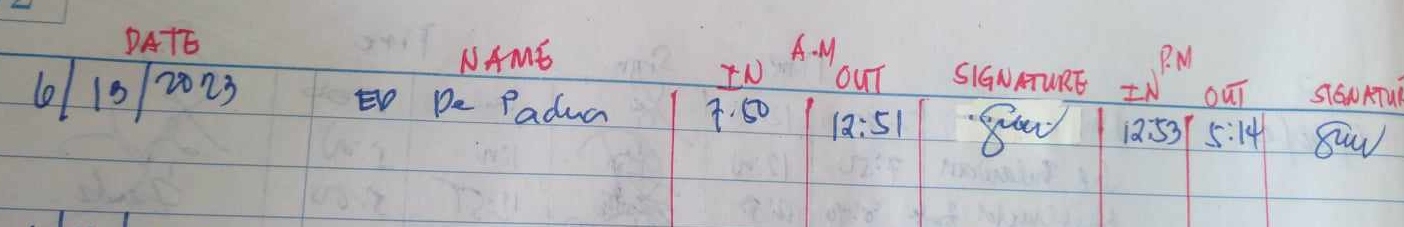 DATE NAME A.M P.M
IN OUT SIGNATURE IN OUT SIGNATUR
6/13/2023 ED De Padua 7:50 12:51 12:53 5:14